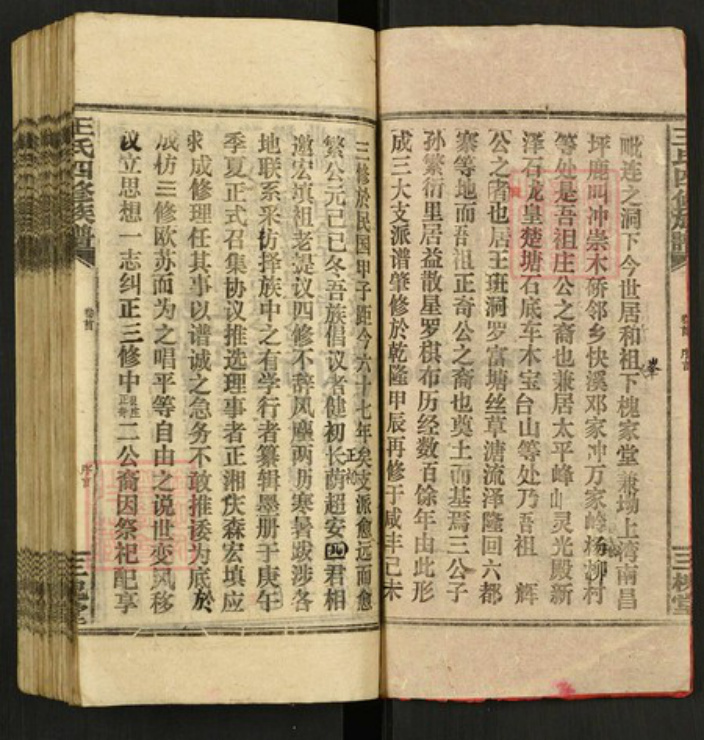 王氏四修族谱
卷首 序言
三槐堂
毗连之洞下今世居和祖下槐家堂兼场上湾南昌
坪鹿叫冲崇木硚邻乡快溪邓家冲万家岭杨柳村
等处是吾祖庄公之裔也兼居太平峰山灵光殿新
泽石龙皇楚塘石底车木宝台山等处乃吾祖 辉
公之裔也居王班洞罗富塘丝草溏流泽隆回六都
寨等地而吾祖正奇公之裔也奠土而基焉三公子
孙繁衍里居益散星罗棋布历经数百馀年由此形
成三大支派谱肇修於乾隆甲辰再修于咸丰己未
三修於民国甲子距今六十七年矣支派愈远而愈
繁公元己巳冬吾族倡议者健初长荫超安四君相
邀宏填祖老提议四修不辞风尘两历寒暑跋涉各
地联系采访择族中之有学行者纂辑墨册于庚午
季夏正式召集协议推选理事者正湘庆森宏填应
求成修理任其事以谱诚之急务不敢推诿为底於
成仿三修欧苏而为之唱平等自由之说世变风移
议立思想一志纠正三修中正奇二公裔因祭祀配享
王氏四修族谱
卷首
序言
三槐堂